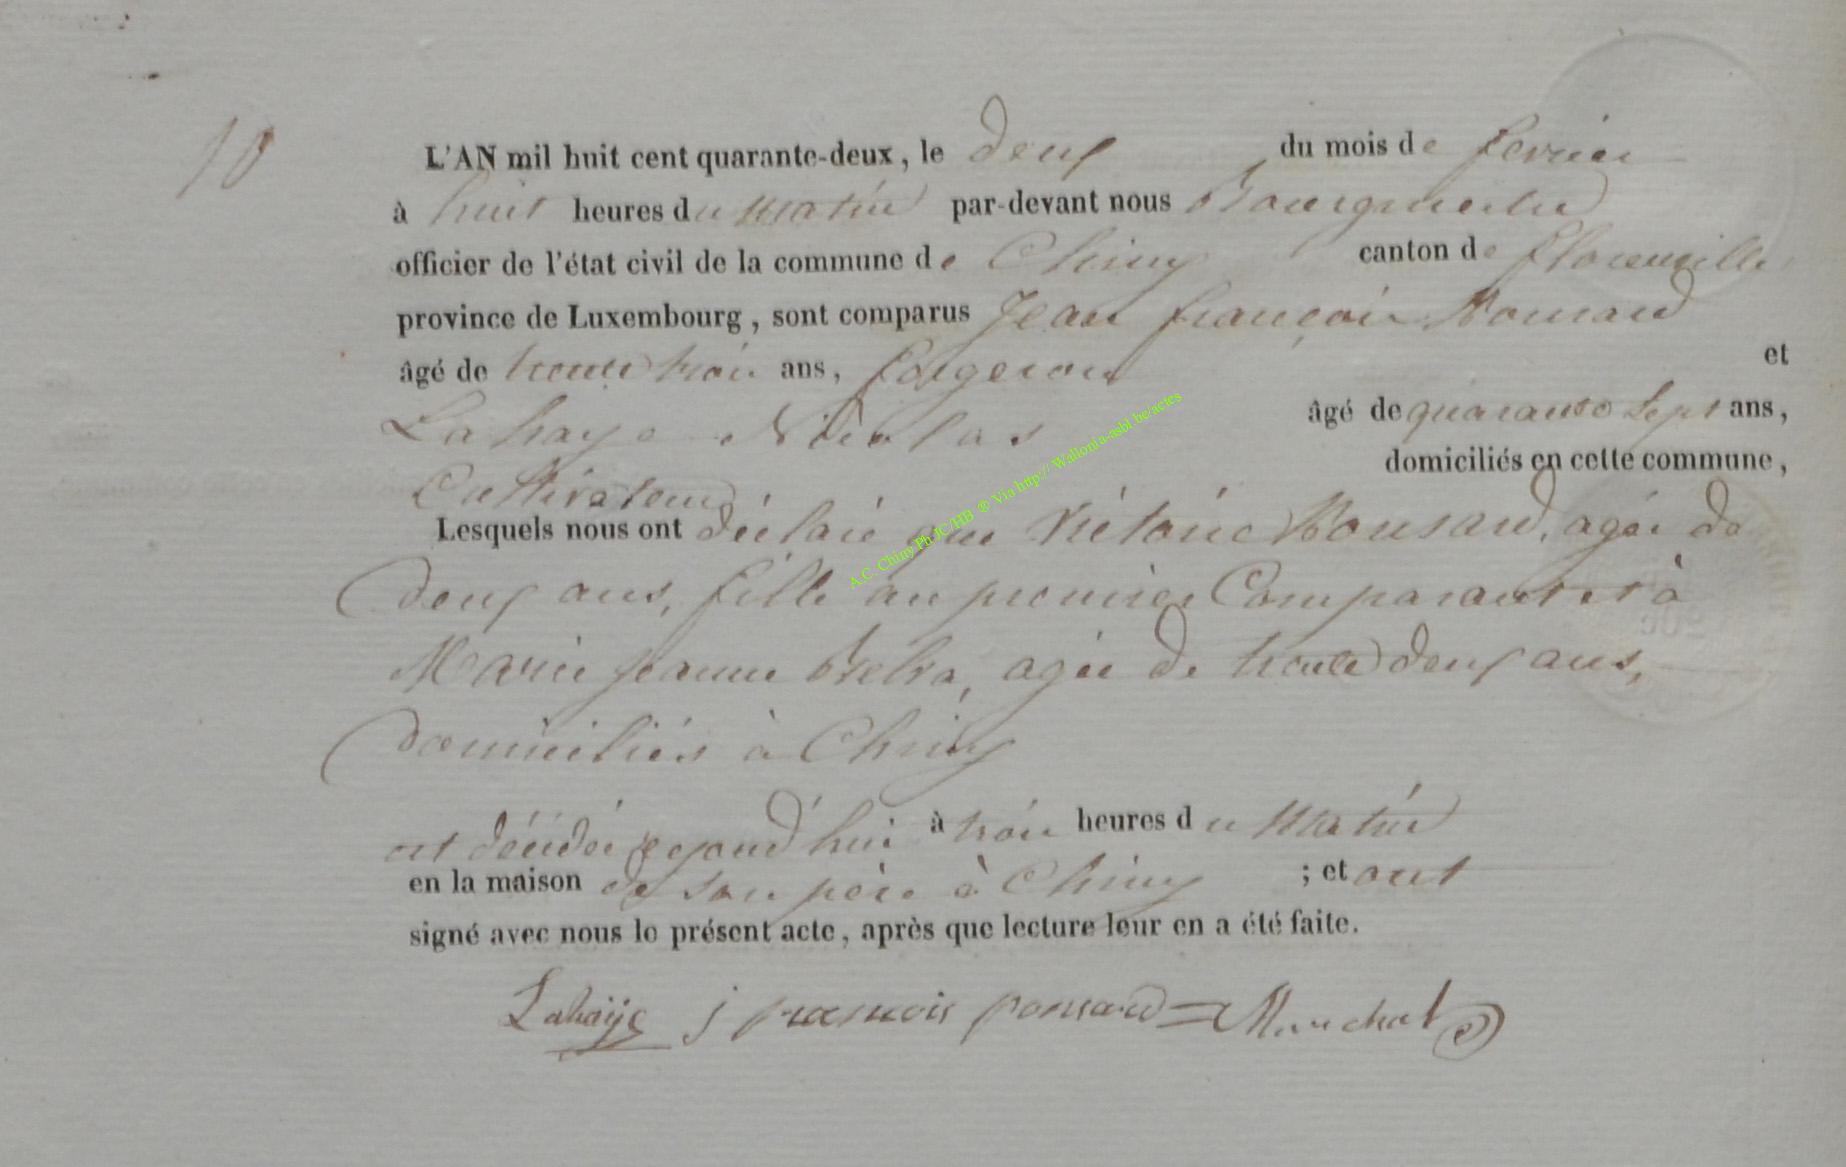 10
L'AN mil huit cent quarante-deux, le deux du mois de fevrier
à huit heures du matin par-devant nous Bourgmestre
officier de l'état civil de la commune de Chiny canton de florenville
province de Luxembourg, sont comparus Jean françois Ponsard
âgé de trente trois ans, forgeron et
Lahaye Nicolas âgé de quarante sept ans,
Cultivateur domiciliés en cette commune,
Lesquels nous ont déclaré que Victoire Ponsard, agée de
deux ans, fille au premier Comparant et à
Marie jeanne, agée de trente deux ans,
domiciliés à Chiny
est décédée aujourd'hui à trois heures du matin
en la maison de son père à Chiny ; et ont
signé avec nous le présent acte, après que lecture leur en a été faite.
Lahaije j francois ponsard Marchal
A.C. Chiny Ph JC/HB ® Via http:// Wallonia-asbl.be/actes